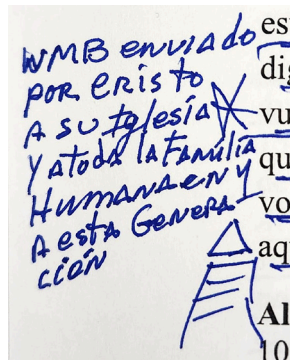 WMB enviado
por cristo
A su Iglesia
Y A toda la Familia
Humana en y
A esta Genera-
ción
es
dig
vu
qu
vo
aq
Al
10